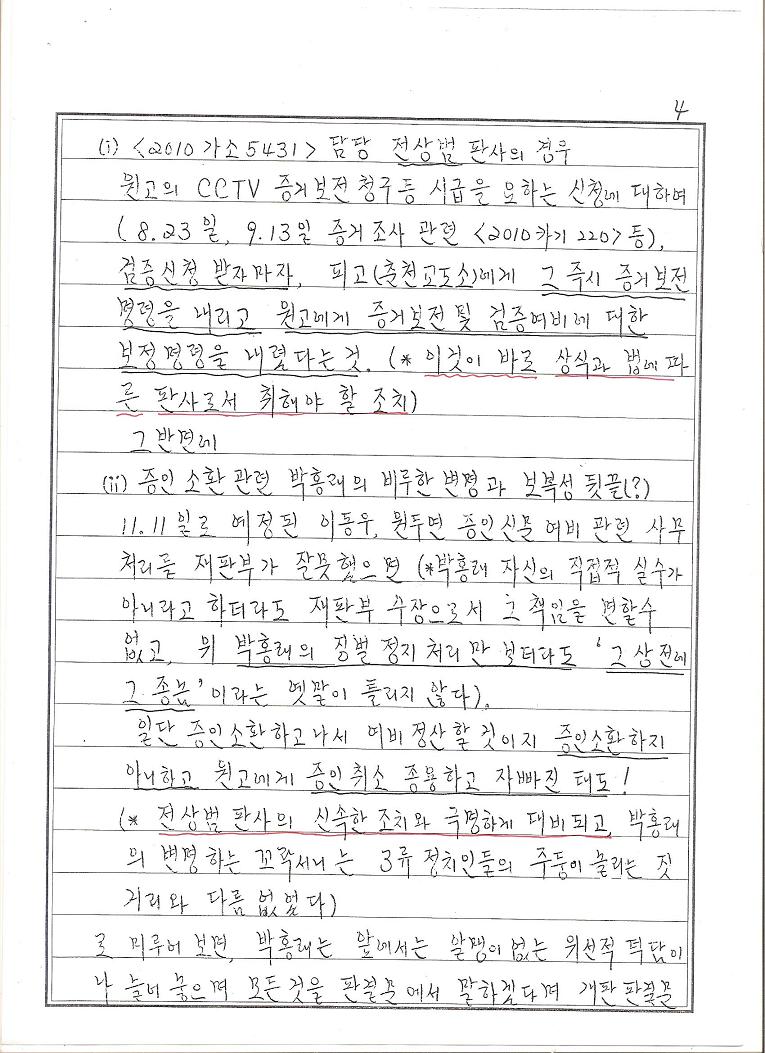 4
(i) <2010 가소 5431> 담당 전상범 판사의 경우
원고의 CCTV 증거보전 청구등 시급을 요하는 신청에 대하여
(8.23일, 9.13일 증거조사 관련 <2010카기 220> 등),
검증신청 받자마자, 피고(춘천교도소)에게 그 즉시 증거보전
명령을 내리고 원고에게 증거보전 및 검증여비에 대한
보정명령을 내렸다는 것. (* 이것이 바로 상식과 법에 따
른 판사로서 취해야 할 조치)
그 반면에
(ii) 증인 소환 관련 박홍래의 비루한 변명과 보복성 뒷끝(?)
11.11일로 예정된 이동우, 원두연 증인신문 여비 관련 사무
처리를 재판부가 잘못했으면 (*박홍래 자신의 직접적 실수가
아니라고 하더라도 재판부 수장으로서 그 책임을 면할수
없고, 위 박홍래의 징벌 정지 처리만 보더라도 '그 상전에
그 종놈'이라는 옛말이 틀리지 않다),
일단 증인소환하고나서 여비 정산할 것이지 증인소환하지
아니하고 원고에게 증인취소 종용하고 자빠진 태도!
(* 전상범 판사의 신속한 조치와 극명하게 대비되고, 박홍래
의 변명하는 꼬락서니는 3류 정치인들의 주둥이 놀리는 짓
거리와 다름 없었다)
로 미루어 보면, 박홍래는 앞에서는 알맹이없는 위선적 덕담이
나 늘어 놓으며 모든것을 판결문에서 말하겠다며 개판 판결문